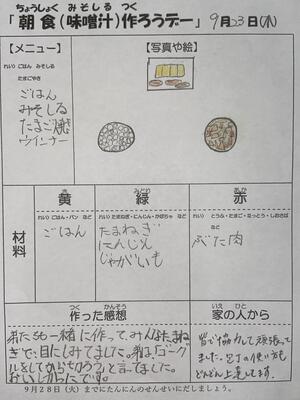 ちょうしょく みそしる つく
「朝食(味噌汁)作ろうデー」 9月23日(木)
【メニュー】
れい) ごはん みそしる
たまごやき
ごはん
みそしる
たまご焼き
ウインナー
【写真や絵】
材料
き
黄
れい) ごはん・パン など
ごはん
みどり
緑
れい) たまねぎ・にんじん・かぼちゃ など
たまねぎ
にんじん
じゃがいも
あか
赤
れい) とうふ・たまご・なっとう・しおさば など
ぶた肉
つく かんそう
作った感想
弟たちも一緒に作って、みんなたまね
ぎで、目にしみてました。弟は、「ゴーグ
ルをしてから切ろう」と言ってました。
おいしかったです。
いえ ひと
家の人から
皆で協力して頑張って
ました。包丁の使い方も
どんどん上達してます。
9月28日(火)までにたんにんのせんせいにだしましょう。